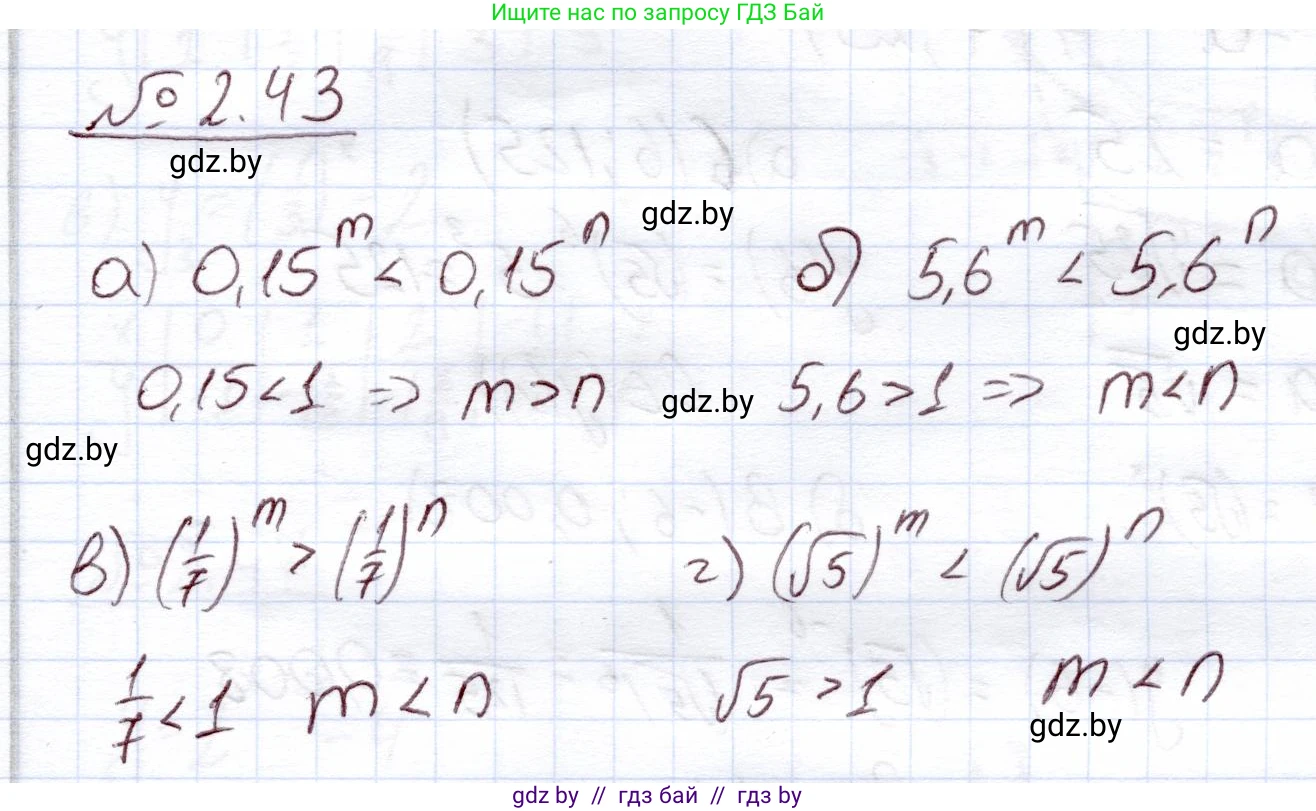 Ищите нас по запросу ГДЗ Бай
№ 2.43
gdz.by
gdz.by
а) 0,15^m < 0,15^n б) 5,6^m < 5,6^n
gdz.by
0,15 < 1 => m > n gdz.by 5,6 > 1 => m < n
gdz.by
в) (1/7)^m > (1/7)^n г) (√5)^m < (√5)^n
1/7 < 1 m < n √5 > 1 m < n
gdz.by
gdz.by // гдз бай // гдз by